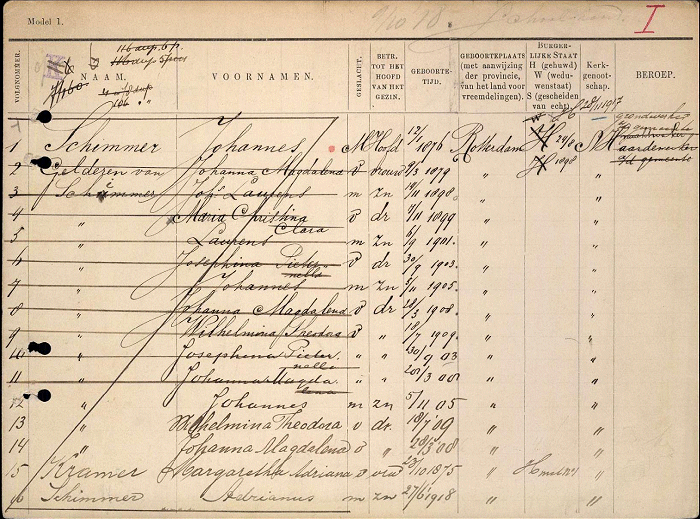 Model 1.
I
VOLGNOMMER.
NAAM.
VOORNAMEN.
GESLACHT.
BETR. TOT HET HOOFD VAN HET GEZIN.
GEBOORTE-TIJD.
GEBOORTEPLAATS (met aanwijzing der provincie, van het land voor vreemdelingen).
BURGER-LIJKE STAAT H (gehuwd) W (wedu-wenstaat) S (gescheiden van echt).
Kerk-genoot-schap.
BEROEP.
1 Schimmer Johannes M Hoofd 12/1 1876 Rotterdam H
2 Gelderen van Johanna Magdalena v vrouw 9/3 1879 " H 1898 "
3 Schimmer Joh. Laurens m zn 1898. " "
4 " Maria Christina v dr 1899 " "
Clara
5 " Laurens m zn 6/9 1901. " "
6 " Josephina Pieter v dr 30/9 1903. " "
nella
7 " Johannes m zn 5/11 1905. " "
8 " Johanna Magdalena v dr 28/3 1908. " "
9 " Wilhelmina Theodora v " 18/7 1909. " "
10 " Josephina Pieter " " 30/9 03 " "
nella
11 " Johanna Magda " " 28/3 08 " "
lena
12 " Johannes m zn 5/11 05 " "
13 " Wilhelmina Theodora v dr. 18/7 09 " "
14 " Johanna Magdalena v " 28/3 08 " "
15 Kramer Margaretha Adriana v vrw 23/10 1875 " H "
16 Schimmer Adrianus m zn 27/6 1918 " "